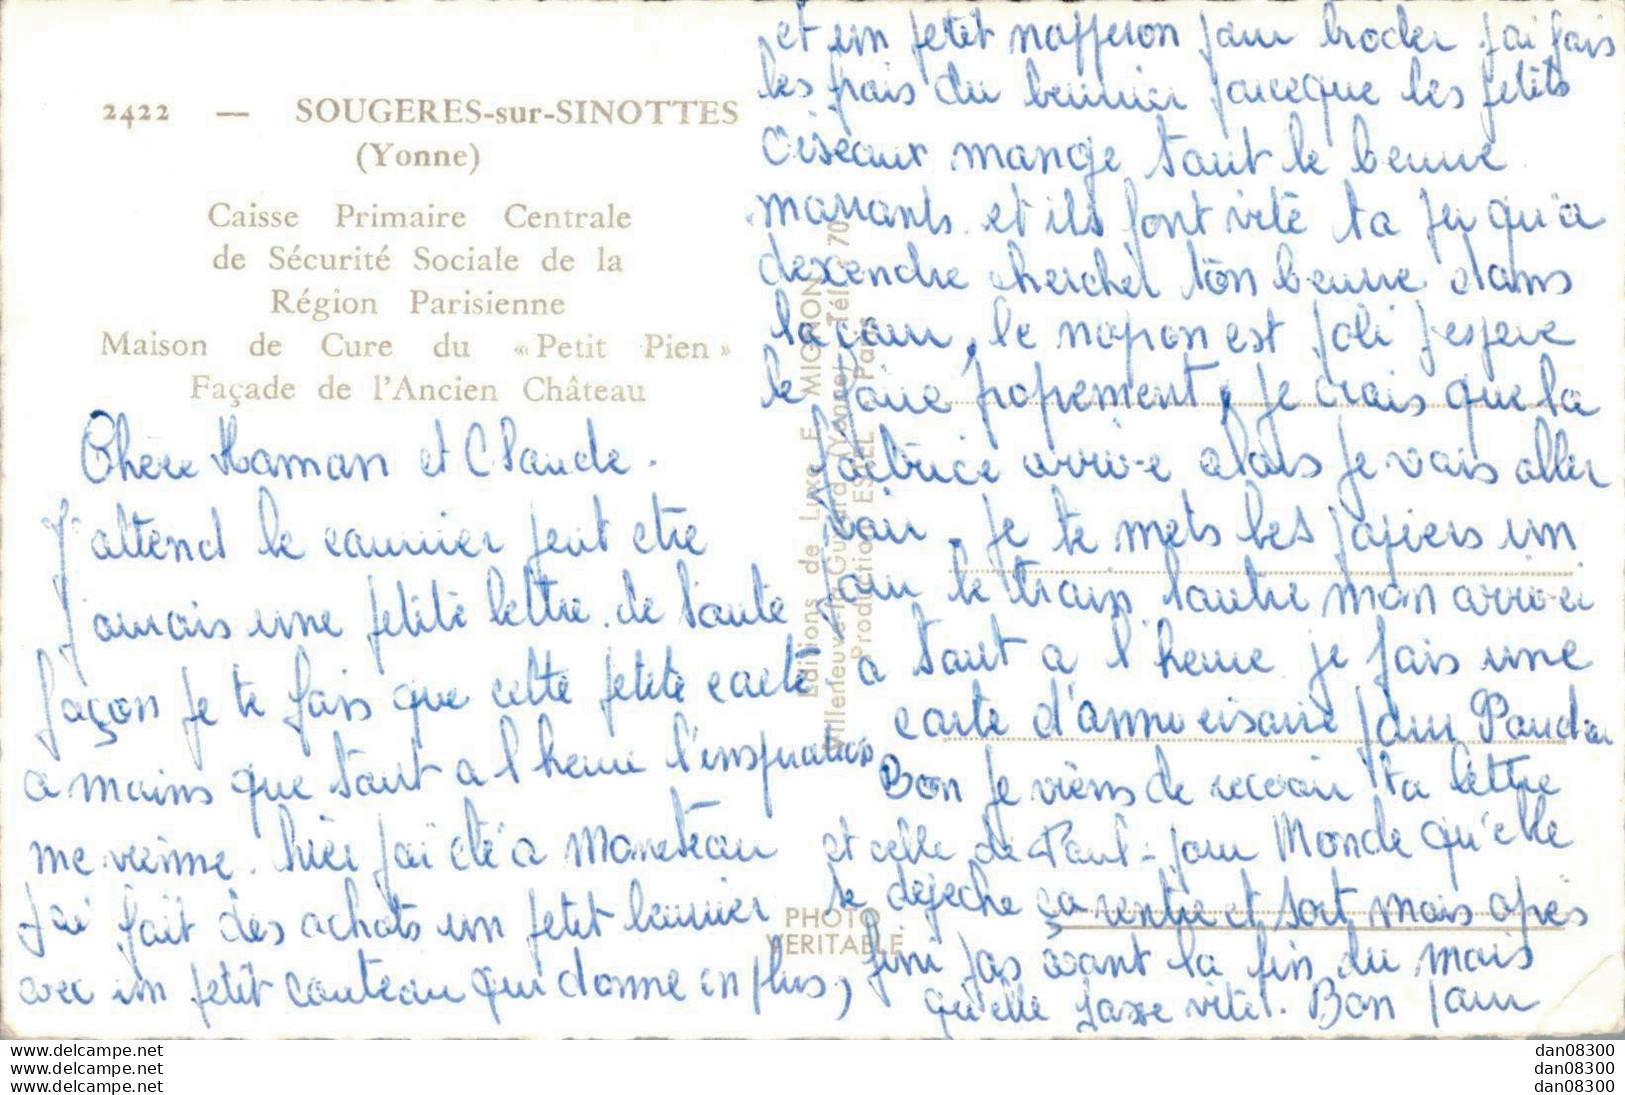 2422 — SOUGERES-sur-SINOTTES
(Yonne)
Caisse Primaire Centrale
de Sécurité Sociale de la
Région Parisienne
Maison de Cure du « Petit Pien »
Façade de l'Ancien Château
Chère Maman et Claude.
J'attend le courrier peut etre
j'aurais une petite lettre. de toute
façon je te fais que cette petite carte
a moins que tout a l heure l'inspiration
me vienne. hier j'ai été a Moneteau
j'ai fait des achats un petit beurrier
avec un petit couteau qui donne en plus,
et un petit napperon pour broder j'ai fais
les frais du beurrier parceque les petits
oiseaux mange tout le beurre
marrants et ils font vite ta qu'a
descendre chercher ton beurre dans
la cour, le napon est joli j'espere
le faire propement, je crois que la
factrice arrive alors je vais aller
voir. je te mets les papiers un
pour le train, l'autre mon arrivei
a tout a l heure je fais une
carte d'anniversaire pour
Bon je viens de recevoir ta lettre
et celle de Paul - pour Monde qu'elle
se dépeche ça rentre et sort mais apres
fini pas avant la fin du mois
qu'elle passe vite. Bon pour
Editions de Luxe E. MIGNON
Villeneuve-la-Guyard (Yonne) Tél. 70
Production ESTEL Paris
PHOTO
VERITABLE
www.delcampe.net
www.delcampe.net
www.delcampe.net
dan08300
dan08300
dan08300